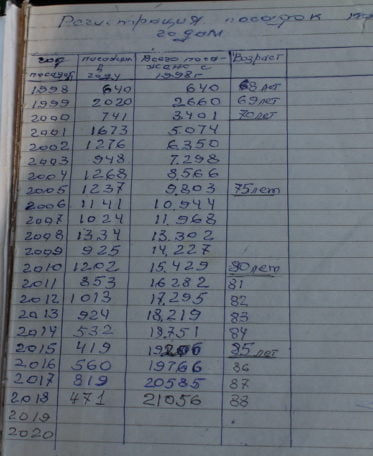 Регистрация посадок
годам
год посажен Всего поса- Возраст
посадок в жено с
году 1998г
1998 640 640 68 лет
1999 2020 2660 69 лет
2000 741 3401 70 лет
2001 1673 5.074
2002 1276 6.350
2003 948 7.298
2004 1268 8.566
2005 1237 9.803 75 лет
2006 1141 10.944
2007 1024 11.968
2008 1334 13.302
2009 925 14.227
2010 1202 15.429 80 лет
2011 853 16282 81
2012 1013 17.295 82
2013 924 18,219 83
2014 532 18751 84
2015 419 19206 85 лет
2016 560 19766 86
2017 819 20585 87
2018 471 21056 88
2019
2020